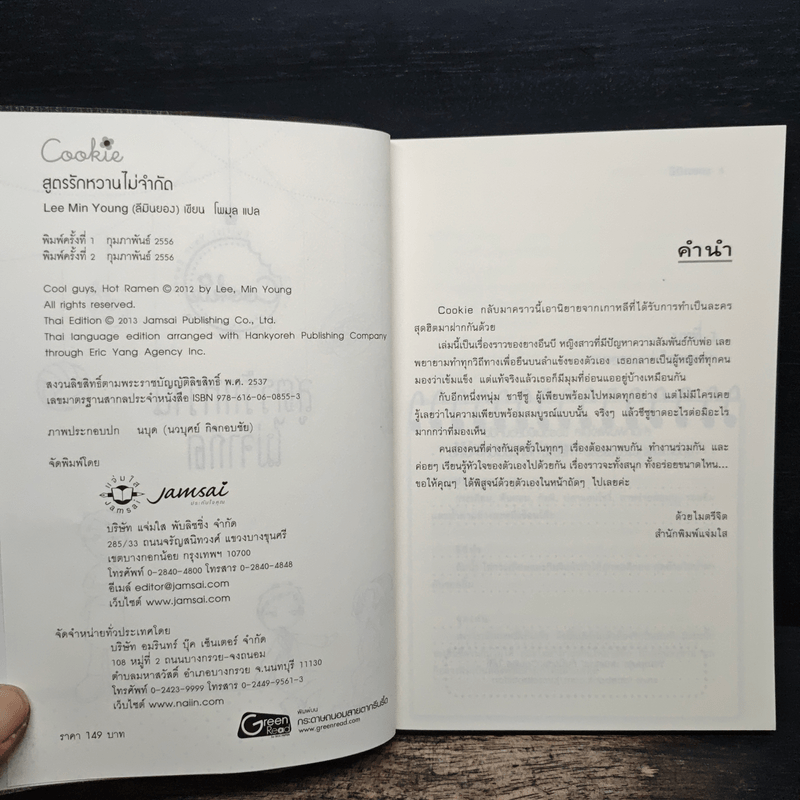 Cookie
สูตรรักหวานไม่จำกัด
Lee Min Young (ลีมินยอง) เขียน โพมุล แปล
พิมพ์ครั้งที่ 1 กุมภาพันธ์ 2556
พิมพ์ครั้งที่ 2 กุมภาพันธ์ 2556
Cool guys, Hot Ramen © 2012 by Lee, Min Young
All rights reserved.
Thai Edition © 2013 Jamsai Publishing Co., Ltd.
Thai language edition arranged with Hankyoreh Publishing Company
through Eric Yang Agency Inc.
สงวนลิขสิทธิ์ตามพระราชบัญญัติลิขสิทธิ์ พ.ศ. 2537
เลขมาตรฐานสากลประจำหนังสือ ISBN 978-616-06-0855-3
ภาพประกอบปก นบุด (นวบุศย์ กิจกอบชัย)
จัดพิมพ์โดย
แจ่มใส
Jamsai
Jamsai
บริษัท แจ่มใส พับลิชชิ่ง จำกัด
285/33 ถนนจรัญสนิทวงศ์ แขวงบางขุนศรี
เขตบางกอกน้อย กรุงเทพฯ 10700
โทรศัพท์ 0-2840-4800 โทรสาร 0-2840-4848
อีเมล์ editor@jamsai.com
เว็บไซต์ www.jamsai.com
จัดจำหน่ายทั่วประเทศโดย
บริษัท อมรินทร์ บุ๊ค เซ็นเตอร์ จำกัด
108 หมู่ที่ 2 ถนนบางกรวย-จงถนอม
ตำบลมหาสวัสดิ์ อำเภอบางกรวย จ.นนทบุรี 11130
โทรศัพท์ 0-2423-9999 โทรสาร 0-2449-9561-3
เว็บไซต์ www.naiin.com
ราคา 149 บาท
Green Read
พิมพ์บน
กระดาษถนอมสายตากรีนรี้ด
www.greenread.com
คำนำ
Cookie กลับมาคราวนี้เอานิยายจากเกาหลีที่ได้รับการทำเป็นละคร
สุดฮิตมาฝากกันด้วย
เล่มนี้เป็นเรื่องราวของยางอึนบี หญิงสาวที่มีปัญหาความสัมพันธ์กับพ่อ เลย
พยายามทำทุกวิถีทางเพื่อยืนบนลำแข้งของตัวเอง เธอกลายเป็นผู้หญิงที่ทุกคน
มองว่าเข้มแข็ง แต่แท้จริงแล้วเธอก็มีมุมที่อ่อนแออยู่บ้างเหมือนกัน
กับอีกหนึ่งหนุ่ม ชาชีซู ผู้เพียบพร้อมไปหมดทุกอย่าง แต่ไม่มีใครเคย
รู้เลยว่าในความเพียบพร้อมสมบูรณ์แบบนั้น จริงๆ แล้วชีซูขาดอะไรต่อมิอะไร
มากกว่าที่มองเห็น
คนสองคนที่ต่างกันสุดขั้วในทุกๆ เรื่องต้องมาพบกัน ทำงานร่วมกัน และ
ค่อยๆ เรียนรู้หัวใจของตัวเองไปด้วยกัน เรื่องราวจะทั้งสนุก ทั้งอร่อยขนาดไหน...
ขอให้คุณๆ ได้พิสูจน์ด้วยตัวเองในหน้าถัดๆ ไปเลยค่ะ
ด้วยไมตรีจิต
สำนักพิมพ์แจ่มใส